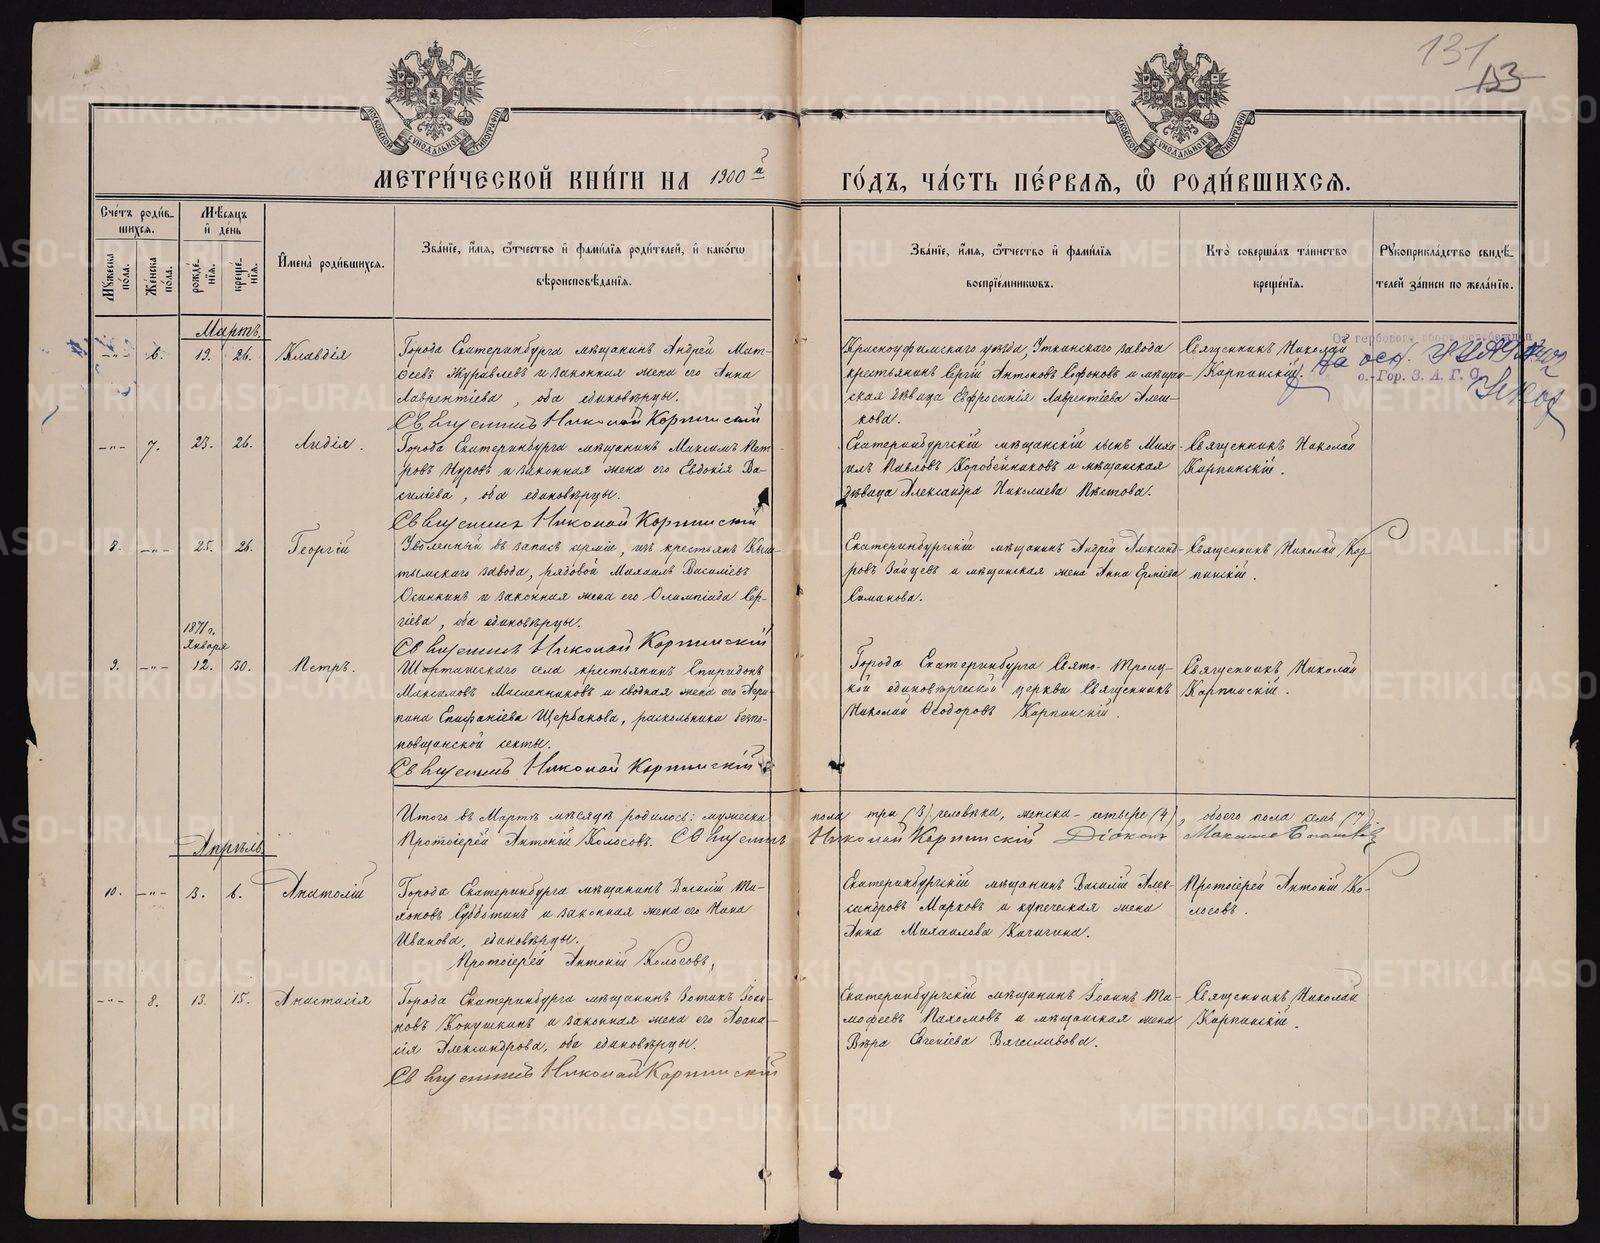 131
153
МОСКОВСКОЙ СѴНОДАЛЬНОЙ ТИПОГРАФІИ
МОСКОВСКОЙ СѴНОДАЛЬНОЙ ТИПОГРАФІИ
МЕТРИ́ЧЕСКОЙ КНИ́ГИ НА 1900й
ГО́ДЪ, ЧА́СТЬ ПЕ́РВАѦ, Ѽ РОДИ́ВШИХСѦ.
Сче́тъ роди́в-
шихся.
Мѣ́сяцъ
и҆ де́нь
Мꙋ́жеска по́ла.
Же́нска по́ла.
рожде́-
нїѧ.
креще́-
нїѧ.
И҆мена̀ роди́вшихсѧ.
Зва́нїе, и҆́мѧ, ѻ҆́тчество и҆ фами́лїѧ роди́телей, и҆ како́гѡ
вѣроисповѣ́данїѧ.
Зва́нїе, и҆́мѧ, ѻ҆́тчество и҆ фами́лїѧ
воспрїе́мникѡвъ.
Кто̀ соверша́лъ та́инство
креще́нїѧ.
Рꙋкоприкла́дство свидѣ́-
телей за́писи по жела́нїю.
Мартъ.
—"— 6. 19. 26. Клавдія
Города Екатеринбурга мѣщанинъ Андрей Мат-
ѳеевъ Журавлевъ и законная жена его Анна
Лаврентіева, оба единовѣрцы.
Священникъ Николай Карпинскій
Красноуфимскаго уѣзда, Уткинскаго завода
крестьянинъ Сергій Антоновъ Софоновъ и мѣщан-
ская дѣвица Евфросинія Лаврентіева Алеш-
кова.
Священникъ Николай
Карпинскій.
на осн.
о.-Гор. З. А. Г. С.
—"— 7. 23. 26. Лидія.
Города Екатеринбурга мѣщанинъ Максимъ Пет-
ровъ Нуровъ и законная жена его Евдокія Ва-
силіева, оба единовѣрцы.
Священникъ Николай Карпинскій
Екатеринбургскій мѣщанскій сынъ Миха-
илъ Павловъ Коробейниковъ и мѣщанская
дѣвица Александра Николаева Пѣстова.
Священникъ Николай
Карпинскій.
8. —"— 25. 26. Георгій
Уволенный въ запасъ арміи, изъ крестьянъ Кыш-
тымскаго завода, рядовой Михаилъ Василіевъ
Осинкинъ и законная жена его Олимпіада Сер-
гіева, оба единовѣрцы.
Священникъ Николай Карпинскій
Екатеринбургскій мѣщанинъ Андрей Александ-
ровъ Зайцевъ и мѣщанская жена Анна Ерміева
Симанова.
Священникъ Николай Кар-
пинскій.
1871 г.
Января
9. —"— 12. 30. Петръ.
Шарташскаго села крестьянинъ Спиридонъ
Максимовъ Масленниковъ и сводная жена его Агри-
пина Епифаніева Щербакова, раскольники безпо-
повщинской секты.
Священникъ Николай Карпинскій
Города Екатеринбурга Свято-Троиц-
кой единовѣрческой церкви Священникъ
Николай Ѳеодоровъ Карпинскій.
Священникъ Николай
Карпинскій.
Итого въ Мартѣ мѣсяцѣ родилось: мужеска пола три (3) человѣка, женска - четыре (4), обоего пола семь (7)
Протоіерей Антоній Колосовъ. Священникъ Николай Карпинскій Діаконъ
Апрѣль
10. —"— 3. 6. Анатолій
Города Екатеринбурга мѣщанинъ Василій Ти-
хоновъ Субботинъ и законная жена его Нина
Иванова, единовѣрцы.
Протоіерей Антоній Колосовъ,
Екатеринбургскій мѣщанинъ Василій Алек-
сандровъ Марковъ и купеческая жена
Анна Михаилова Качигина.
Протоіерей Антоній Ко-
лосовъ.
—"— 8. 13. 15. Анастасія
Города Екатеринбурга мѣщанинъ Зотикъ Іоан-
новъ Конушкинъ и законная жена его Аѳана-
сія Александрова, оба единовѣрцы.
Священникъ Николай Карпинскій
Екатеринбургскій мѣщанинъ Іоаннъ Ти-
мофеевъ Пахомовъ и мѣщанская жена
Вѣра Евгеніева Вячеславова.
Священникъ Николай
Карпинскій.
METRIKI.GASO-URAL.RU